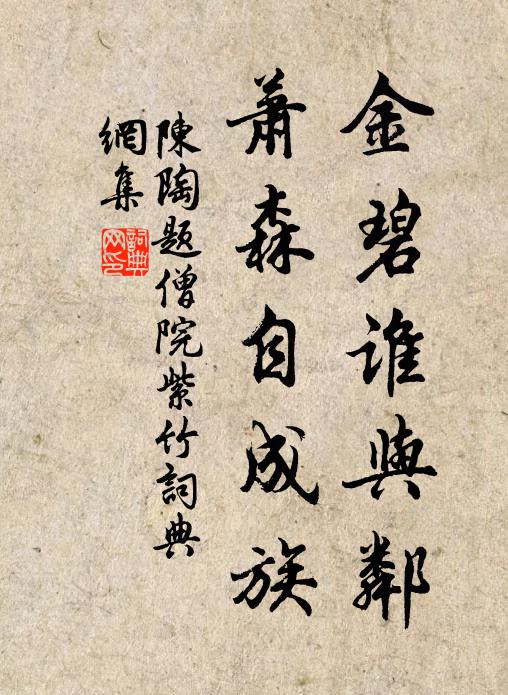 金碧誰與鄰
蕭森自成族
陳陶題僧院紫竹詞典
網集
詞典网印